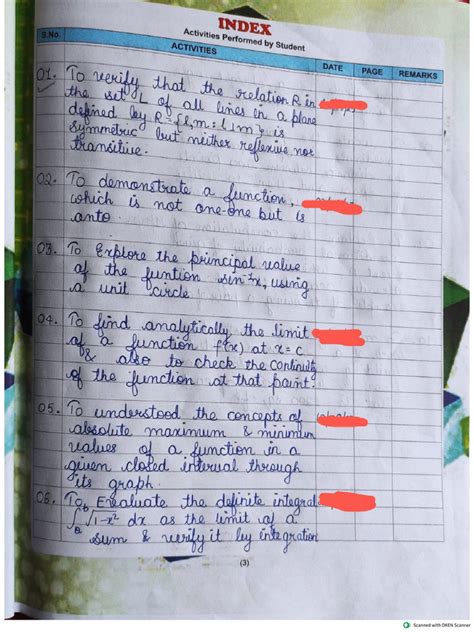 INDEX
Activities Performed by Student
S.No. ACTIVITIES DATE PAGE REMARKS
01. To verify that the relation R in
the set L of all lines in a plane
defined by R={l,m: l⊥m} is
symmetric but neither reflexive nor
transitive.
02. To demonstrate a function,
which is not one-one but is
onto.
03. To Explore the principal value
of the funtion sin⁻¹x, using
a unit circle
04. To find analytically the limit
of a function f(x) at x=c
& also to check the Continuity
of the function at that point.
05. To understood the concepts of
absolute maximum & minimum
values of a function in a
given closed interval through
its graph.
06. To Evaluate the definite integral
∫ √1-x² dx as the limit of a
sum & verify it by integration
(3)
Scanned with OKEN Scanner